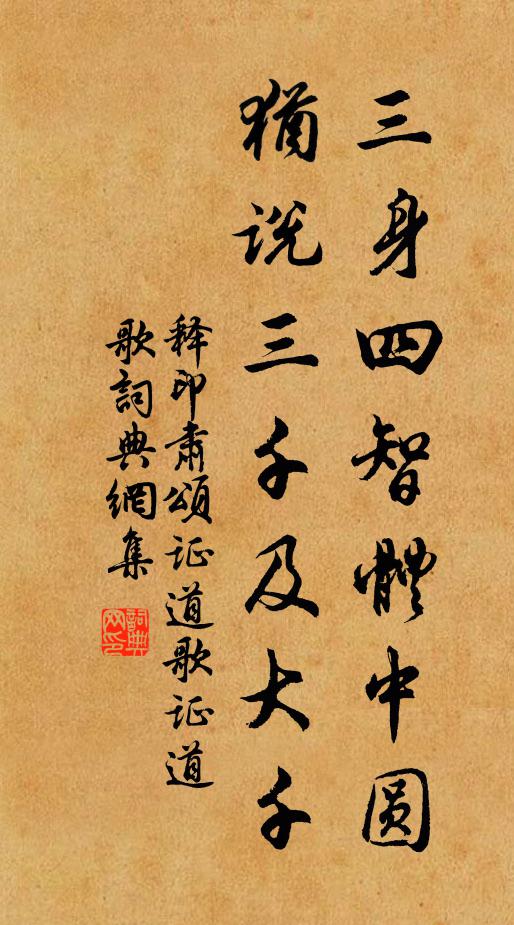 三身四智體中圆
犹説三千及大千
释印肃頌证道歌证道
歌詞典網集
詞典
网印